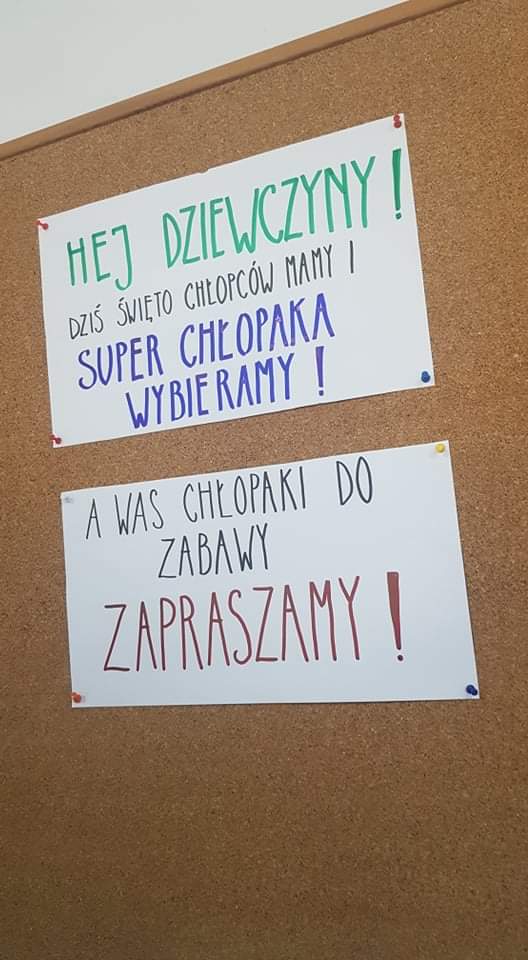 HEJ DZIEWCZYNY!
DZIŚ ŚWIĘTO CHŁOPCÓW MAMY I
SUPER CHŁOPAKA
WYBIERAMY!
A WAS CHŁOPAKI DO
ZABAWY
ZAPRASZAMY!